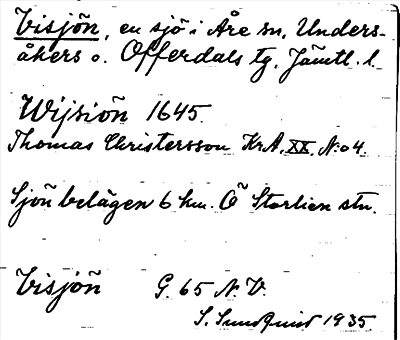 Visjön, en sjö i Åre sn, Unders-
åkers o. Offerdals tg, Jämtl. l.
Wijsiön 1645.
Thomas Christersson KrA, XX, N:o 4.
Sjön belägen 6 km. Ö Storlien stn.
Visjön G. 65 N.V.
S. Sundquist 1935.